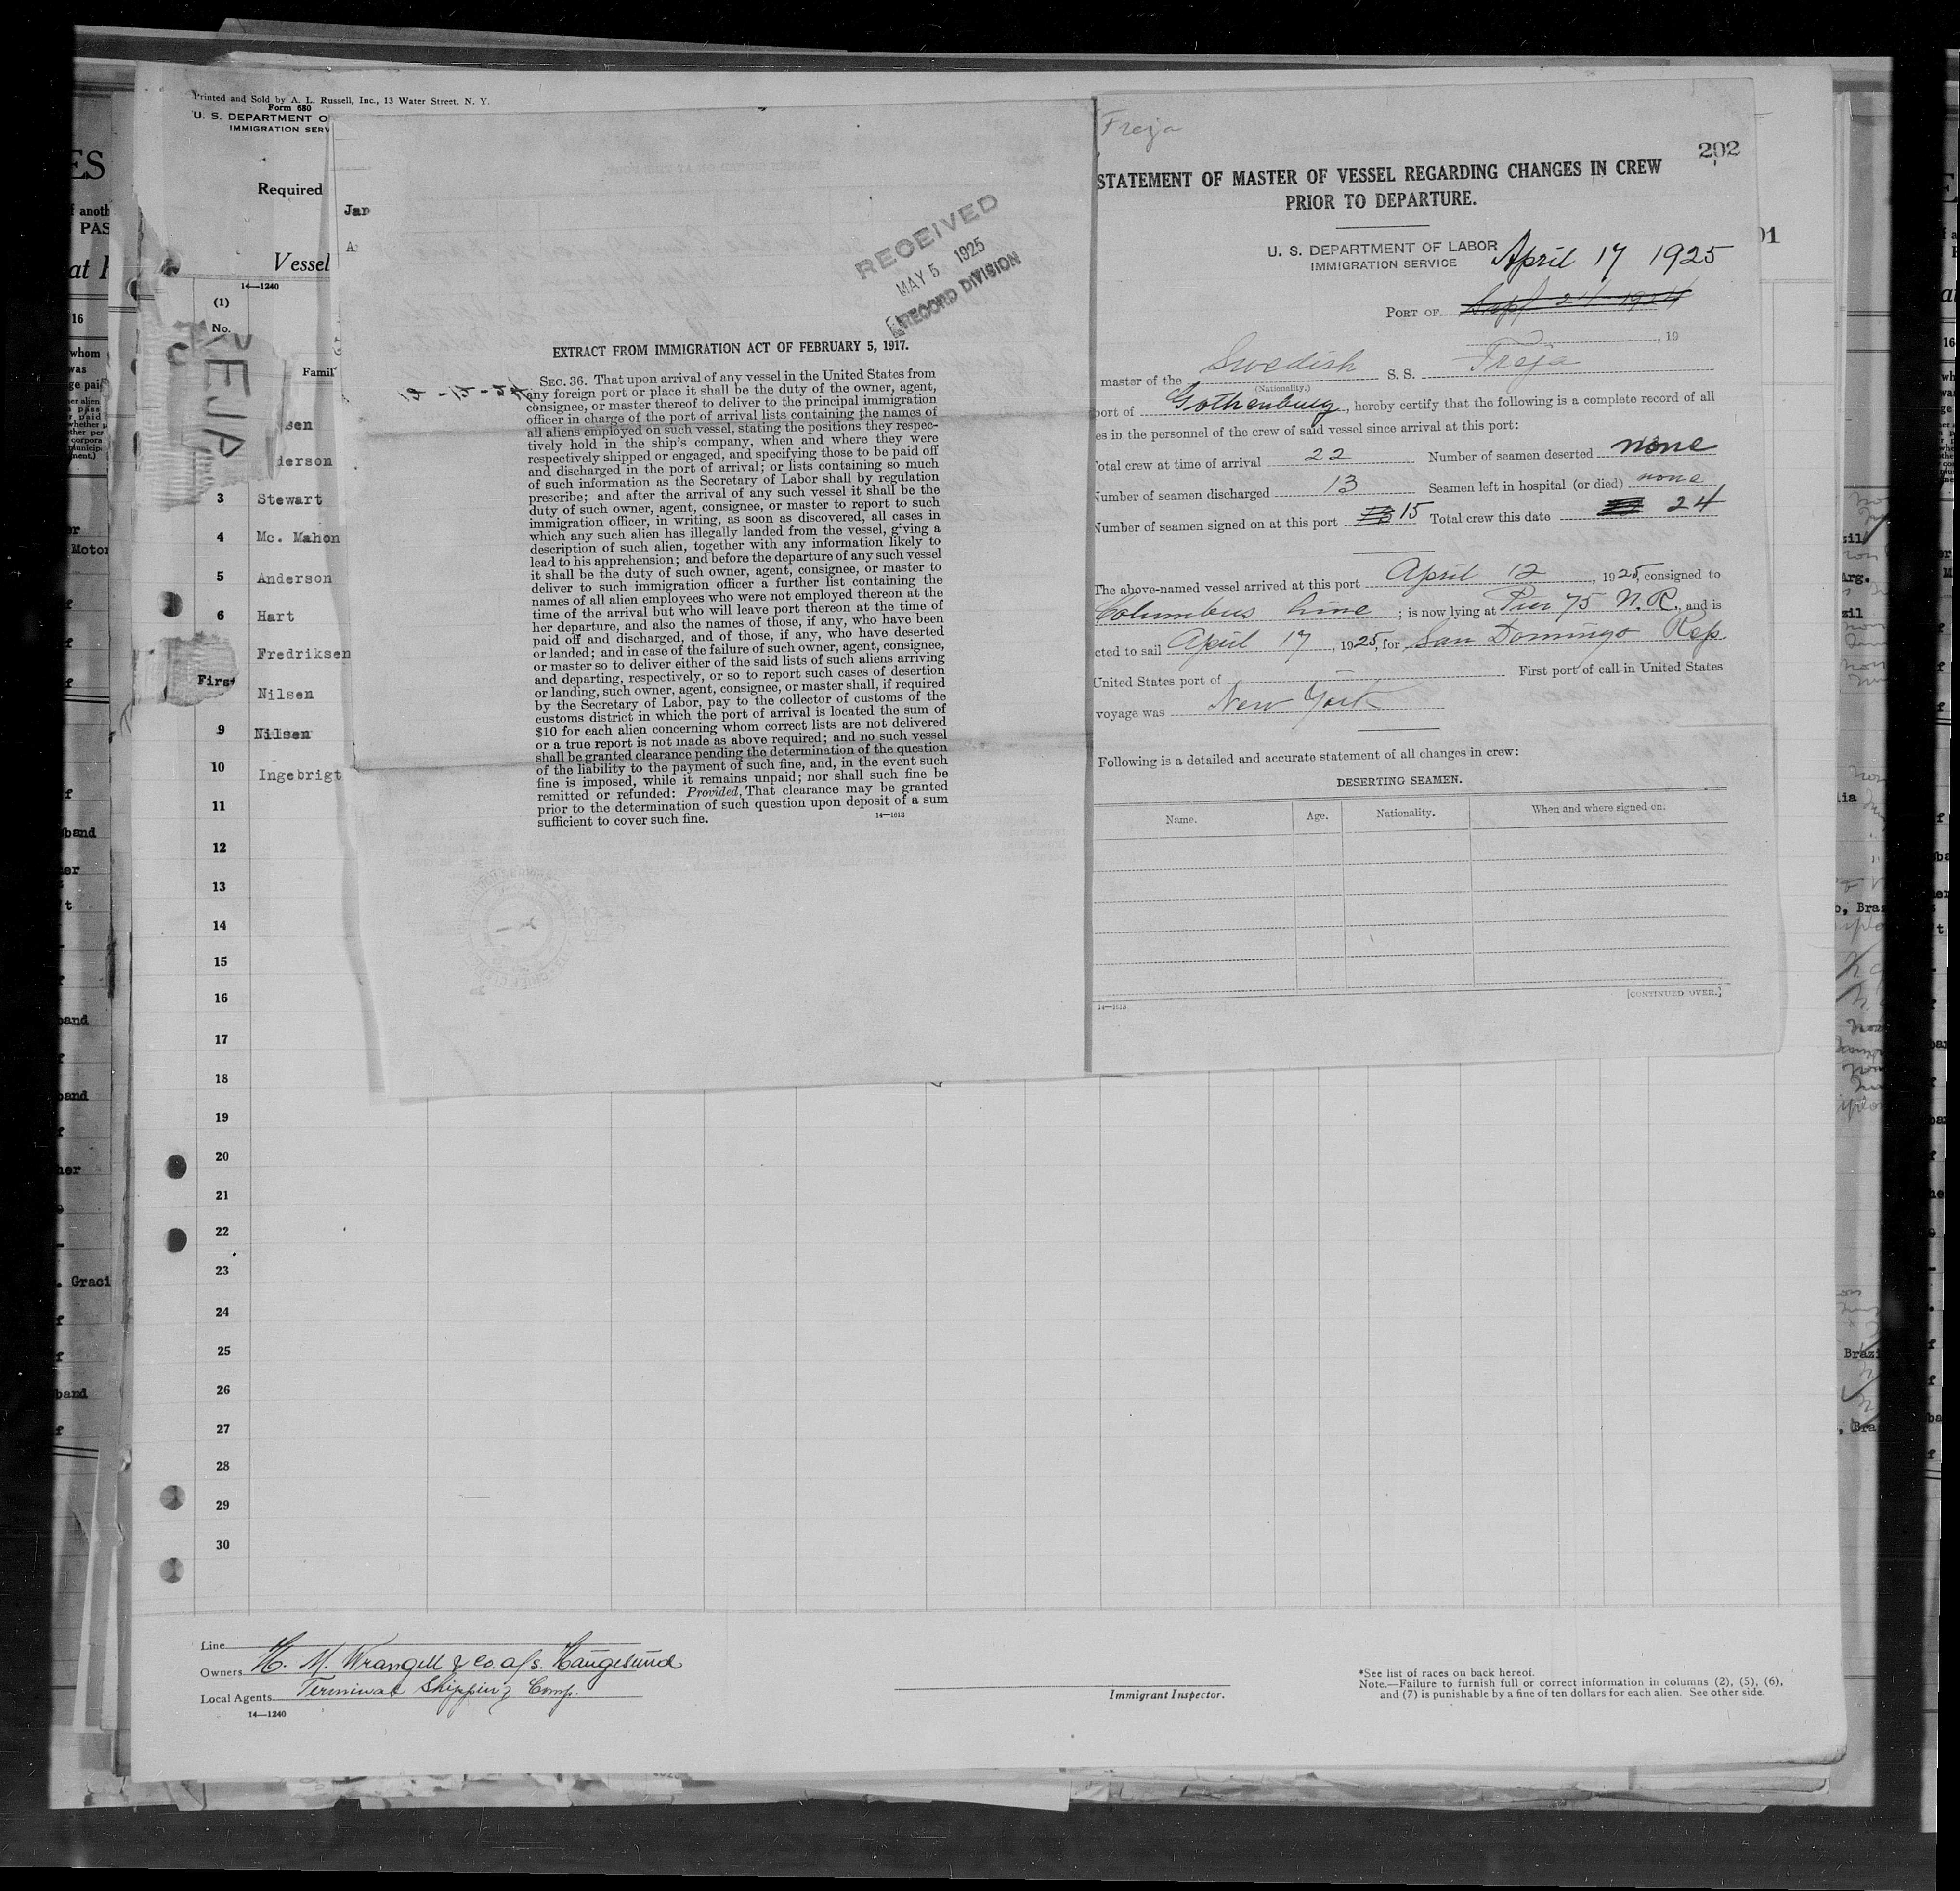 Printed and Sold by A. L. Russell, Inc., 13 Water Street, N. Y.
Form 680
U. S. DEPARTMENT O
IMMIGRATION SERV
Required
Vessel
14—1240
(1)
No.
Famil
sen
derson
3 Stewart
4 Mc. Mahon
5 Anderson
6 Hart
Fredriksen
First
Nilsen
9 Nilsen
10 Ingebrigt
11
12
13
14
15
16
17
18
19
20
21
22
23
24
25
26
27
28
29
30
Line
Owners H. M. Wrangell & Co. a/s. Haugesund
Local Agents Terminal Shipping Comp.
14—1240
Immigrant Inspector.
*See list of races on back hereof.
Note.—Failure to furnish full or correct information in columns (2), (5), (6),
and (7) is punishable by a fine of ten dollars for each alien. See other side.
Jan
RECEIVED
MAY 5 1925
RECORD DIVISION
EXTRACT FROM IMMIGRATION ACT OF FEBRUARY 5, 1917.
SEC. 36. That upon arrival of any vessel in the United States from
any foreign port or place it shall be the duty of the owner, agent,
consignee, or master thereof to deliver to the principal immigration
officer in charge of the port of arrival lists containing the names of
all aliens employed on such vessel, stating the positions they respec-
tively hold in the ship's company, when and where they were
respectively shipped or engaged, and specifying those to be paid off
and discharged in the port of arrival; or lists containing so much
of such information as the Secretary of Labor shall by regulation
prescribe; and after the arrival of any such vessel it shall be the
duty of such owner, agent, consignee, or master to report to such
immigration officer, in writing, as soon as discovered, all cases in
which any such alien has illegally landed from the vessel, giving a
description of such alien, together with any information likely to
lead to his apprehension; and before the departure of any such vessel
it shall be the duty of such owner, agent, consignee, or master to
deliver to such immigration officer a further list containing the
names of all alien employees who were not employed thereon at the
time of the arrival but who will leave port thereon at the time of
her departure, and also the names of those, if any, who have been
paid off and discharged, and of those, if any, who have deserted
or landed; and in case of the failure of such owner, agent, consignee,
or master so to deliver either of the said lists of such aliens arriving
and departing, respectively, or so to report such cases of desertion
or landing, such owner, agent, consignee, or master shall, if required
by the Secretary of Labor, pay to the collector of customs of the
customs district in which the port of arrival is located the sum of
$10 for each alien concerning whom correct lists are not delivered
or a true report is not made as above required; and no such vessel
shall be granted clearance pending the determination of the question
of the liability to the payment of such fine, and, in the event such
fine is imposed, while it remains unpaid; nor shall such fine be
remitted or refunded: Provided, That clearance may be granted
prior to the determination of such question upon deposit of a sum
sufficient to cover such fine.
14—1613
Freja
202
STATEMENT OF MASTER OF VESSEL REGARDING CHANGES IN CREW
PRIOR TO DEPARTURE.
U. S. DEPARTMENT OF LABOR
IMMIGRATION SERVICE
April 17 1925
PORT OF Sept 24 1924
, 19
master of the Swedish S. S. Freja
(Nationality.)
port of Gothenburg, hereby certify that the following is a complete record of all
es in the personnel of the crew of said vessel since arrival at this port:
Total crew at time of arrival 22 Number of seamen deserted none
Number of seamen discharged 13 Seamen left in hospital (or died) none
Number of seamen signed on at this port 15 Total crew this date 24
The above-named vessel arrived at this port April 12, 1925, consigned to
Columbus Line; is now lying at Pier 75 N. R., and is
cted to sail April 17, 1925, for San Domingo Rep.
United States port of First port of call in United States
voyage was New York
Following is a detailed and accurate statement of all changes in crew:
DESERTING SEAMEN.
Name. Age. Nationality. When and where signed on.
14—1613
[CONTINUED OVER.]